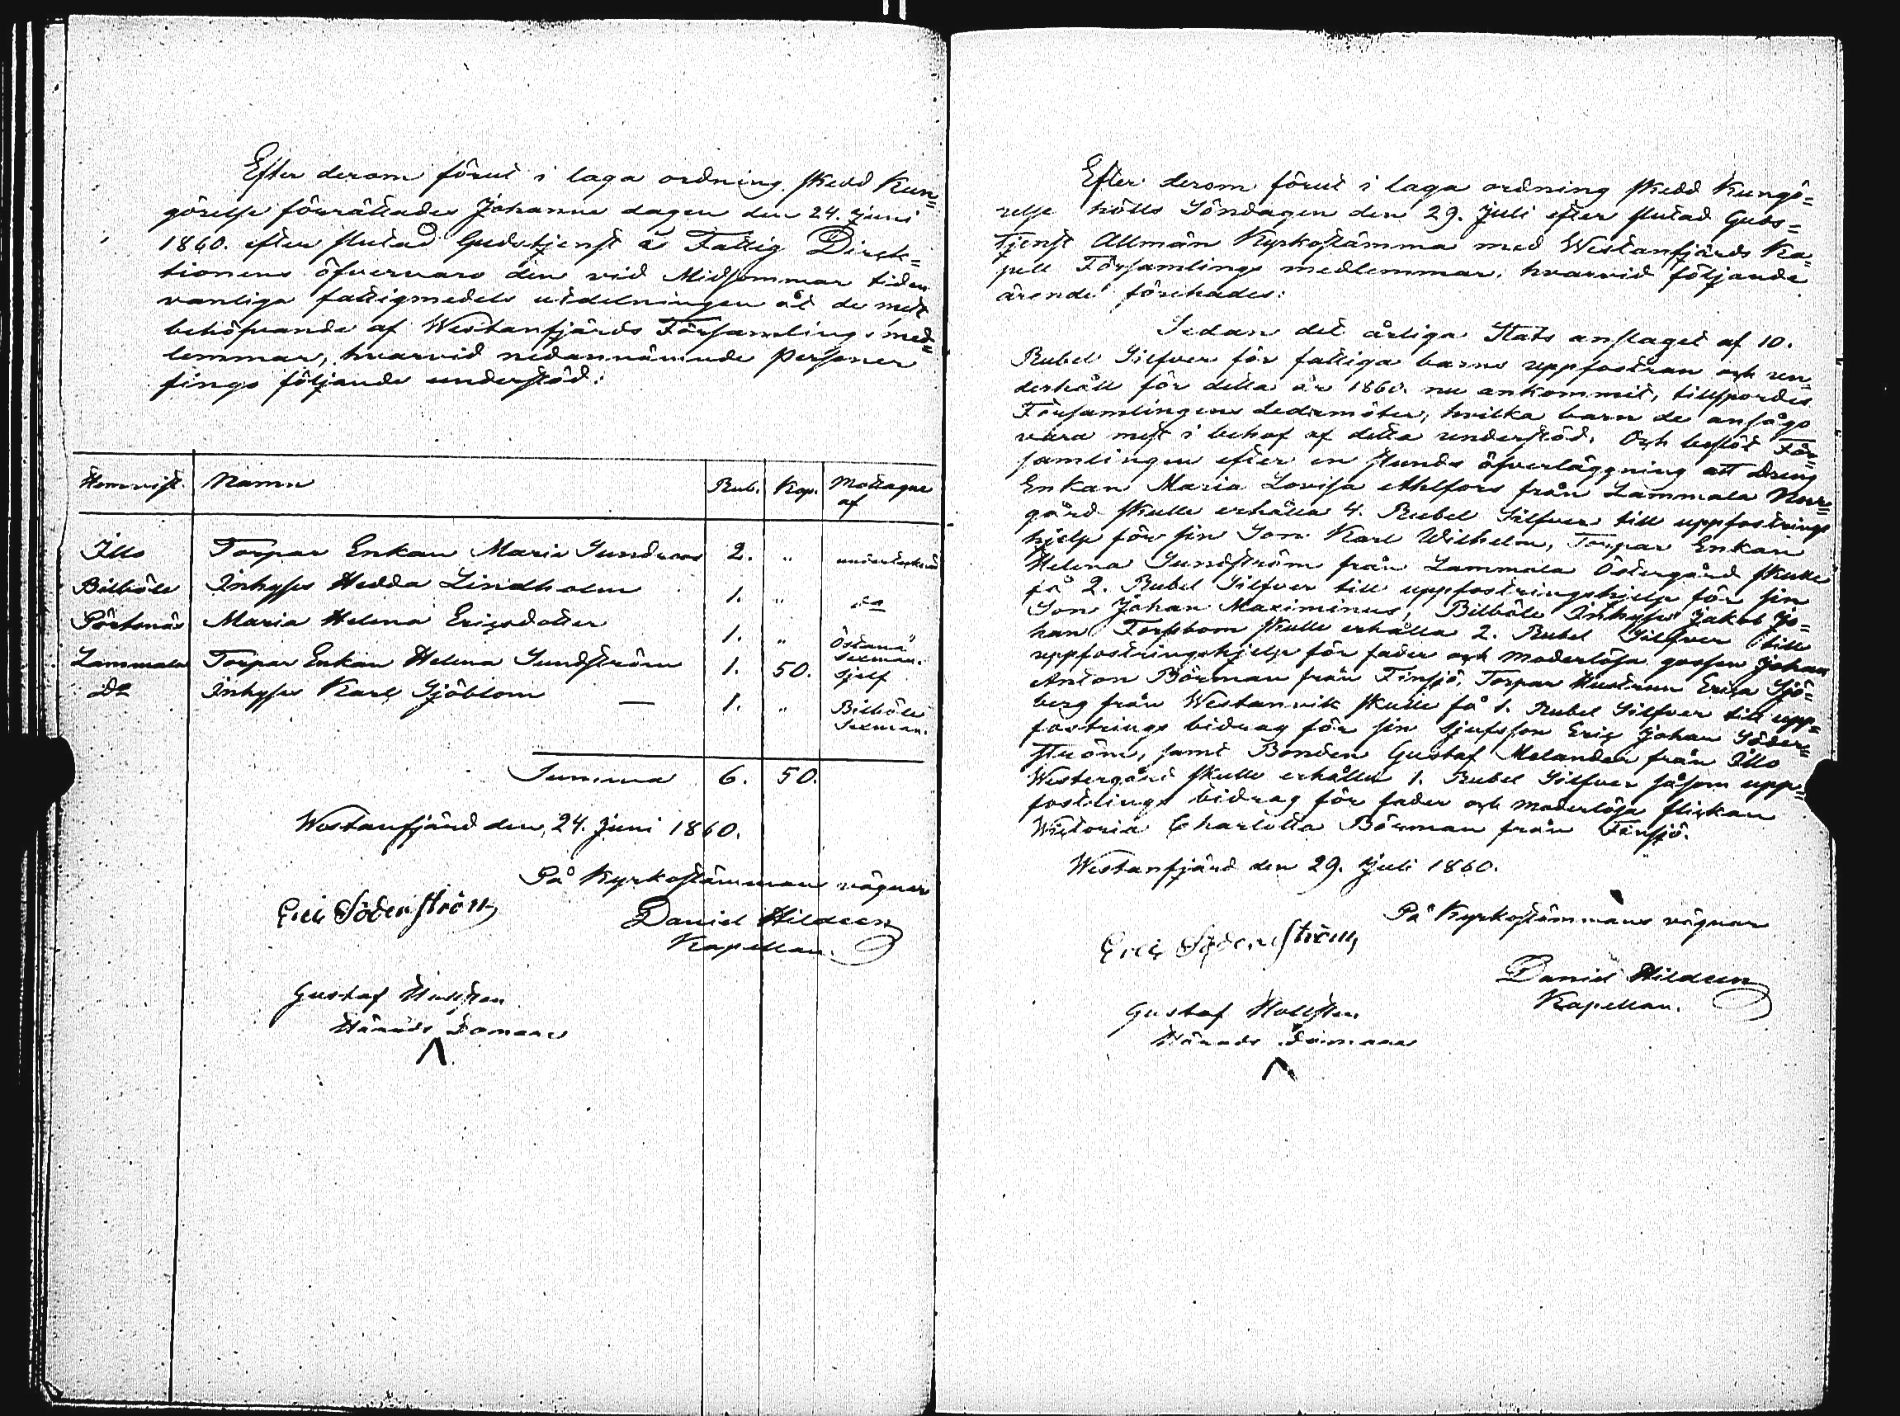 Efter derom förut i laga ordning skedd Kun=
görelse förrättades Johanne dagen den 24. Juni
1860. efter slutad Gudstjenst å Fattig Direk=
tionens öfvervaro den vid Midsommar tiden
vanliga fattigmedels utdelningen åt de mest
behöfvande af Westanfjärds Församlings med=
lemmar, hvarvid nedannämnde personer
fingo följande understöd:
Hemvist. Namn Rub. Kop. Mottagne af
Illo Torpar Enkan Maria Sundroos 2. " undertecknad
Bilböle Inhyses Hedda Lindholm 1. " do
Görtsnäs Maria Helena Ericsdotter 1. " Östanå Sexman.
Lammala Torpar Enkan Helena Sundström 1. 50. Sjelf
do Inhyses Karl Sjöblom — 1. " Bilböle Sexman.
Summa 6. 50.
Westanfjärd den 24. Juni 1860.
På Kyrkostämmans vägnar
Eric Söderström Daniel Hildeen
Kapellan.
Gustaf Hollsten
Härads Domare
Efter derom förut i laga ordning skedd Kungö=
relse hölls Söndagen den 29. Juli efter slutad Guds=
tjenst Allmän Kyrkostämma med Westanfjärds Ka=
pell Församlings medlemmar, hvarvid följande
ärende förehades:
Sedan det årliga Stats anslaget af 10.
Rubel Silfver för fattiga barns uppfostran och un=
derhåll för detta år 1860. nu ankommit, tillspordes
Församlingens ledamöter, hvilka barn de ansågo
vara mest i behof af detta understöd. Och beslöt För=
samlingen efter en stunds öfverläggning att Dreng
Enkan Maria Lovisa Ahlfors från Lammala Norr=
gård skulle erhålla 4. Rubel Silfver till uppfostrings
hjelp för sin Son Karl Wilhelm, Torpar Enkan
Helena Sundström från Lammala Östergård skulle
få 2. Rubel Silfver till uppfostringshjelp för sin
Son Johan Maximinus, Bilböle Inhyses Jakob Jo=
han Forsbom skulle erhålla 2. Rubel Silfver till
uppfostringshjelp för fader och moderlösa gossen Johan
Anton Börman från Finsjö, Torpar Hustrun Erica Sjö=
berg från Westanvik skulle få 1. Rubel Silfver till upp=
fostrings bidrag för sin Styfson Eric Johan Söder=
ström, samt Bonden Gustaf Melander från Illo
Westergård skulle erhålla 1. Rubel Silfver såsom upp=
fostrings bidrag för fader och moderlösa flickan
Wictoria Charlotta Börman från Finsjö.
Westanfjärd den 29. Juli 1860.
På Kyrkostämmans vägnar
Eric Söderström Daniel Hildeen
Kapellan.
Gustaf Hollsten
Härads Domare